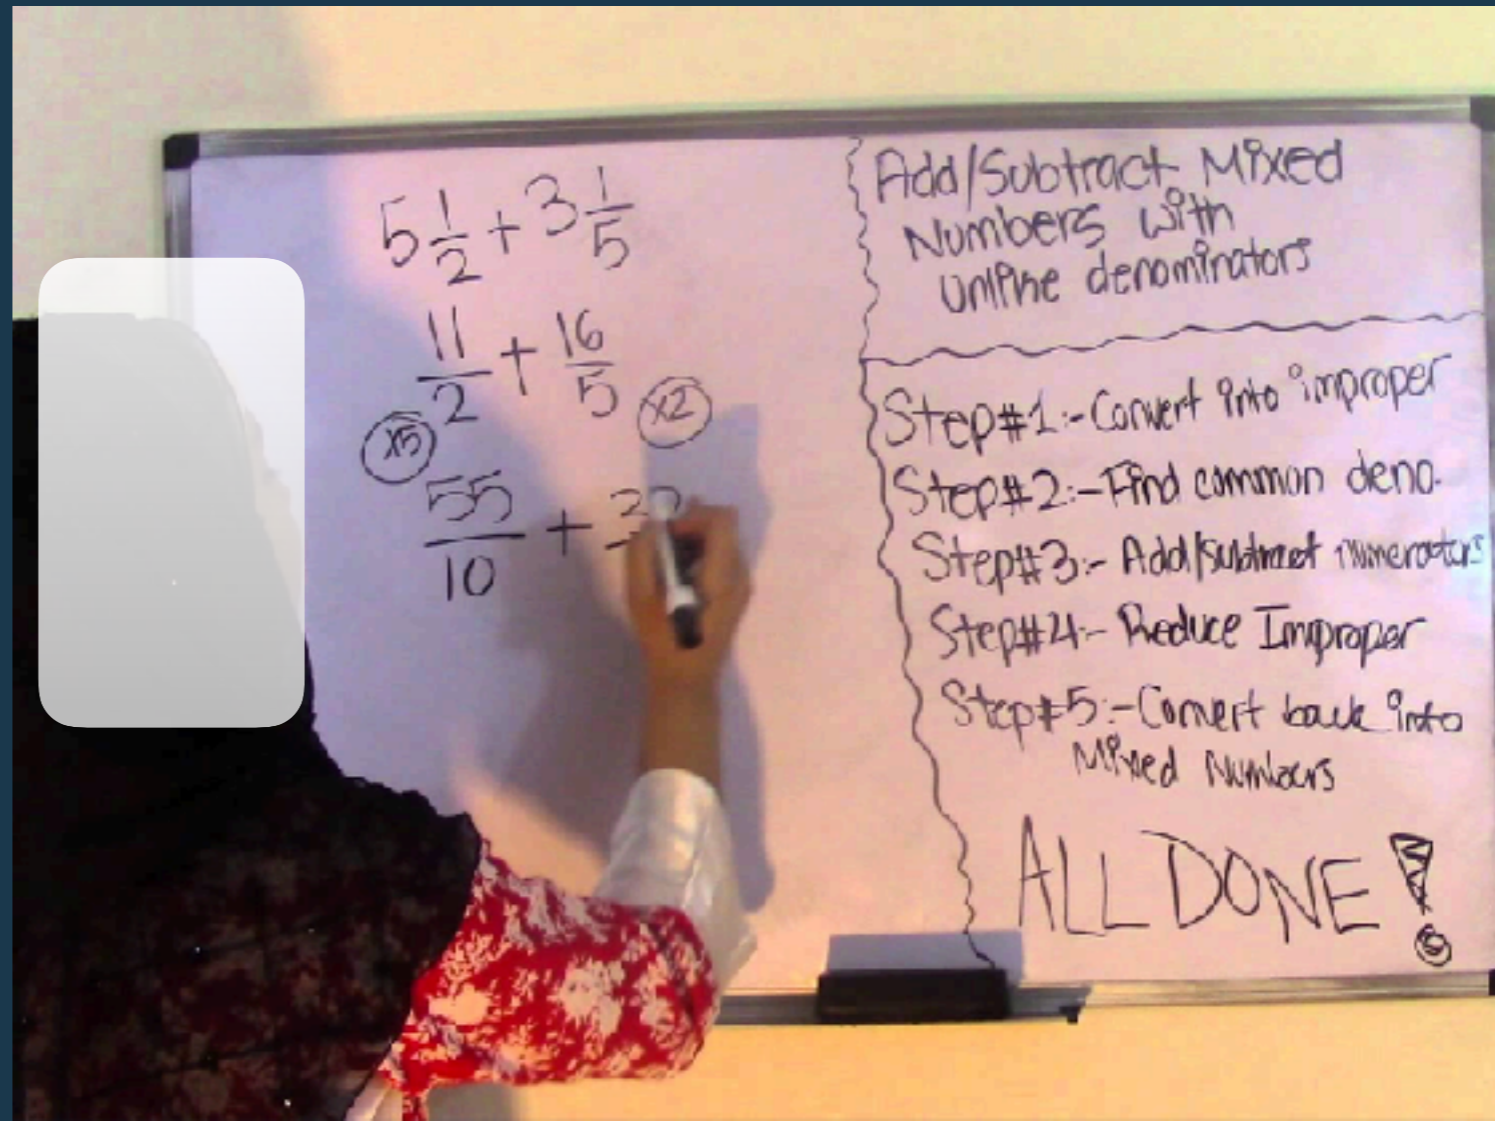 5 1/2 + 3 1/5
11/2 + 16/5
x5 x2
55/10 + 32
Add/Subtract Mixed
Numbers with
Unlike denominators
Step#1:- Convert into improper
Step#2:- Find common deno.
Step#3:- Add/subtract numerators
Step#4:- Reduce Improper
Step#5:- Convert back into
Mixed Numbers
ALL DONE!